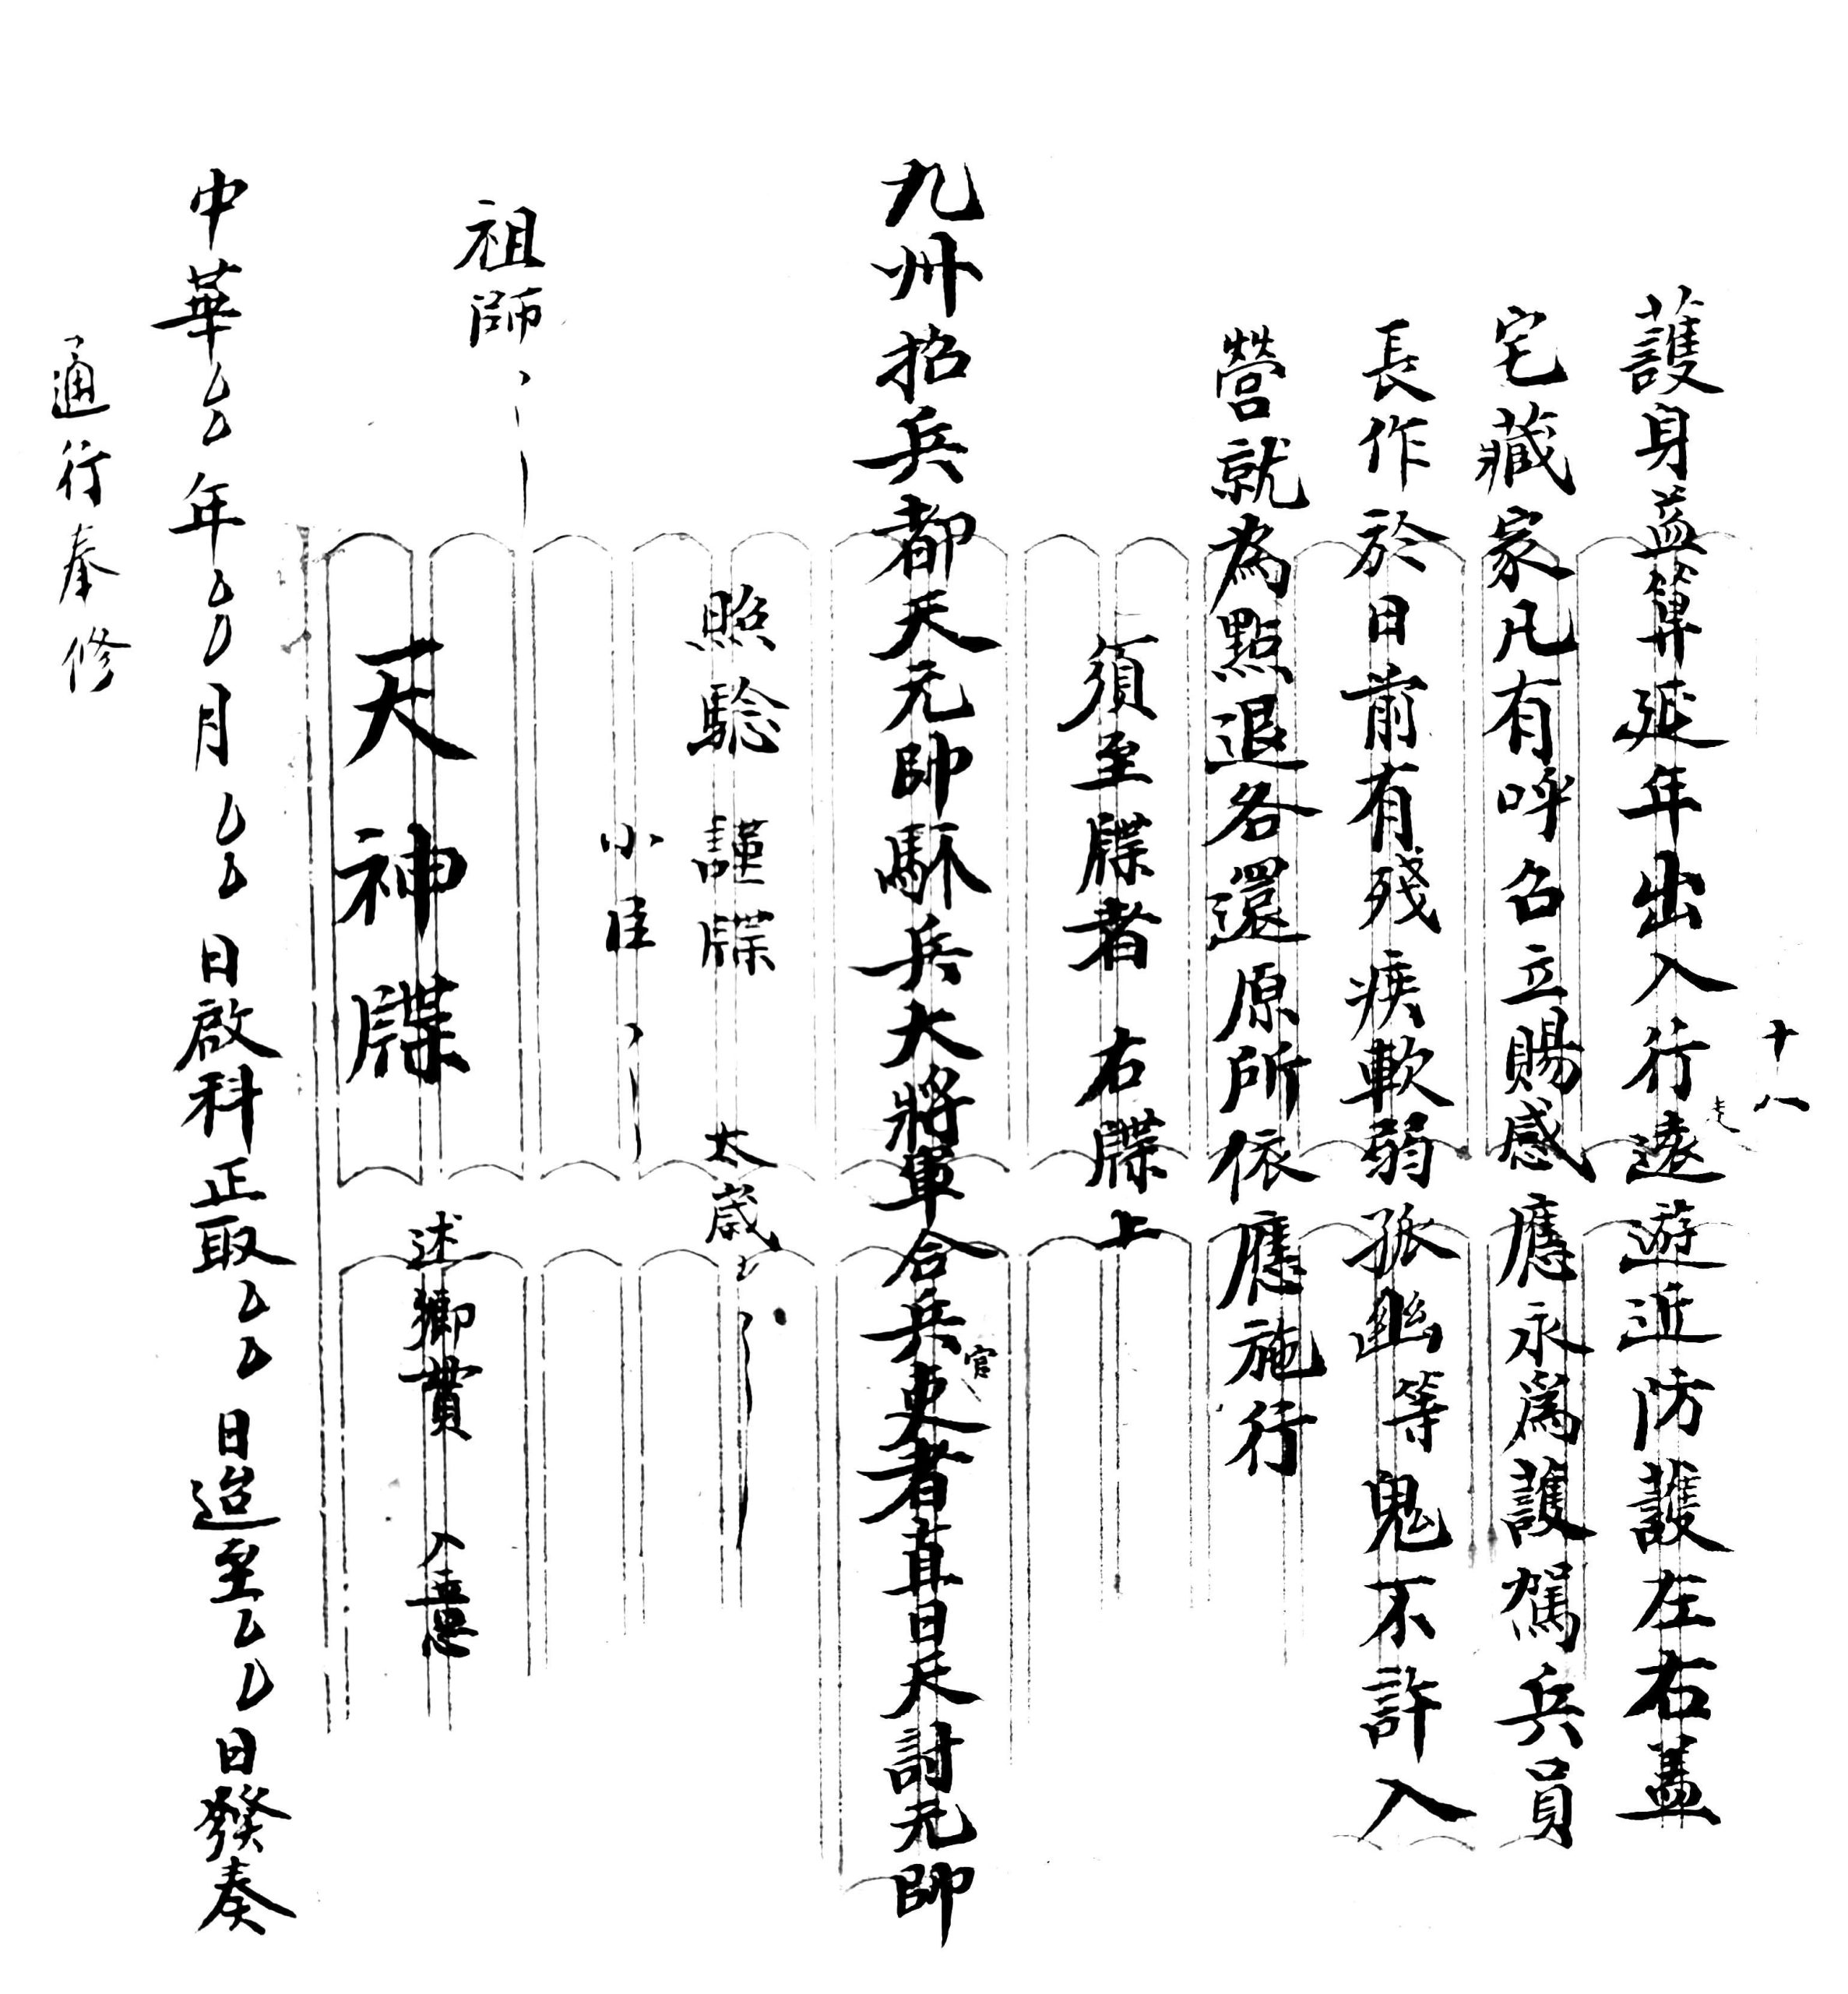 十八
護身益算延年出入行遠遊近防護左右蓋
宅藏家凡有呼召立賜感應永爲護駕兵員
長作於日前有殘疾軟弱孤幽等鬼不許入
營就為點退各還原所依應施行
須至牒者 右牒上
九州招兵都天元帥馱兵大將軍合兵吏者直日尺討元帥
官
照驗 謹牒 太歲
小臣
祖師
天神牒 述鄉貫 入意
中華 年 月 日啟科正取 日迨至 日發奏
通行奉修